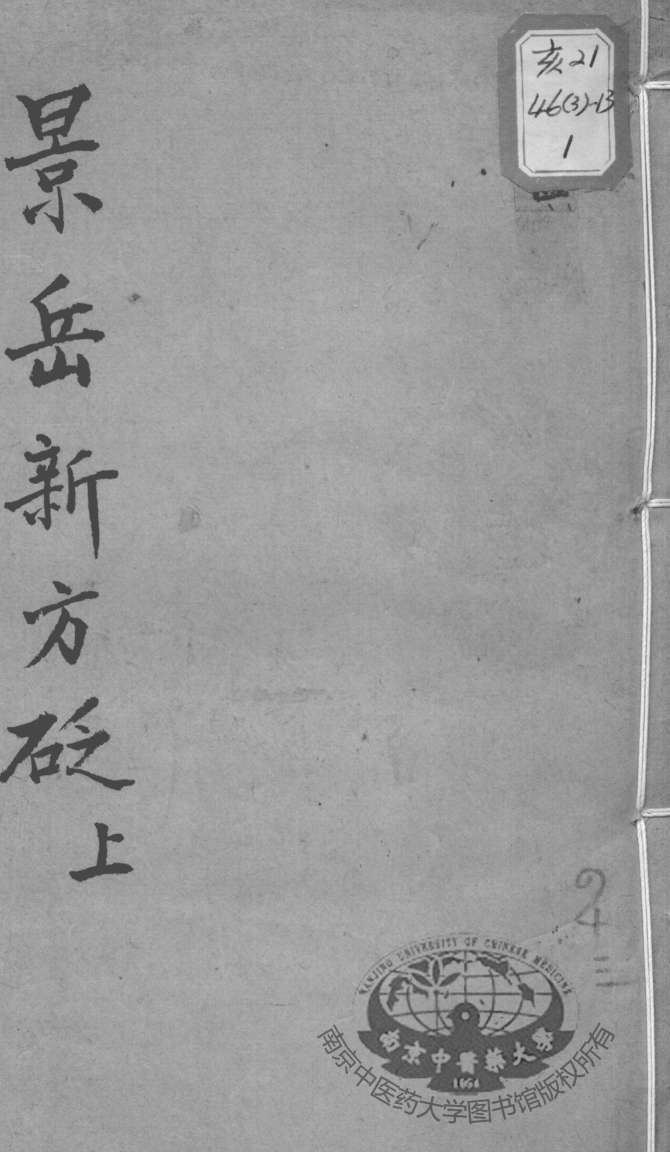 亥21
46(3)-13
1
景岳新方砭
上
24
三
NANJING UNIVERSITY OF CHINESE MEDICINE
南京中醫藥大學
1954
南京中医药大学图书馆版权所有